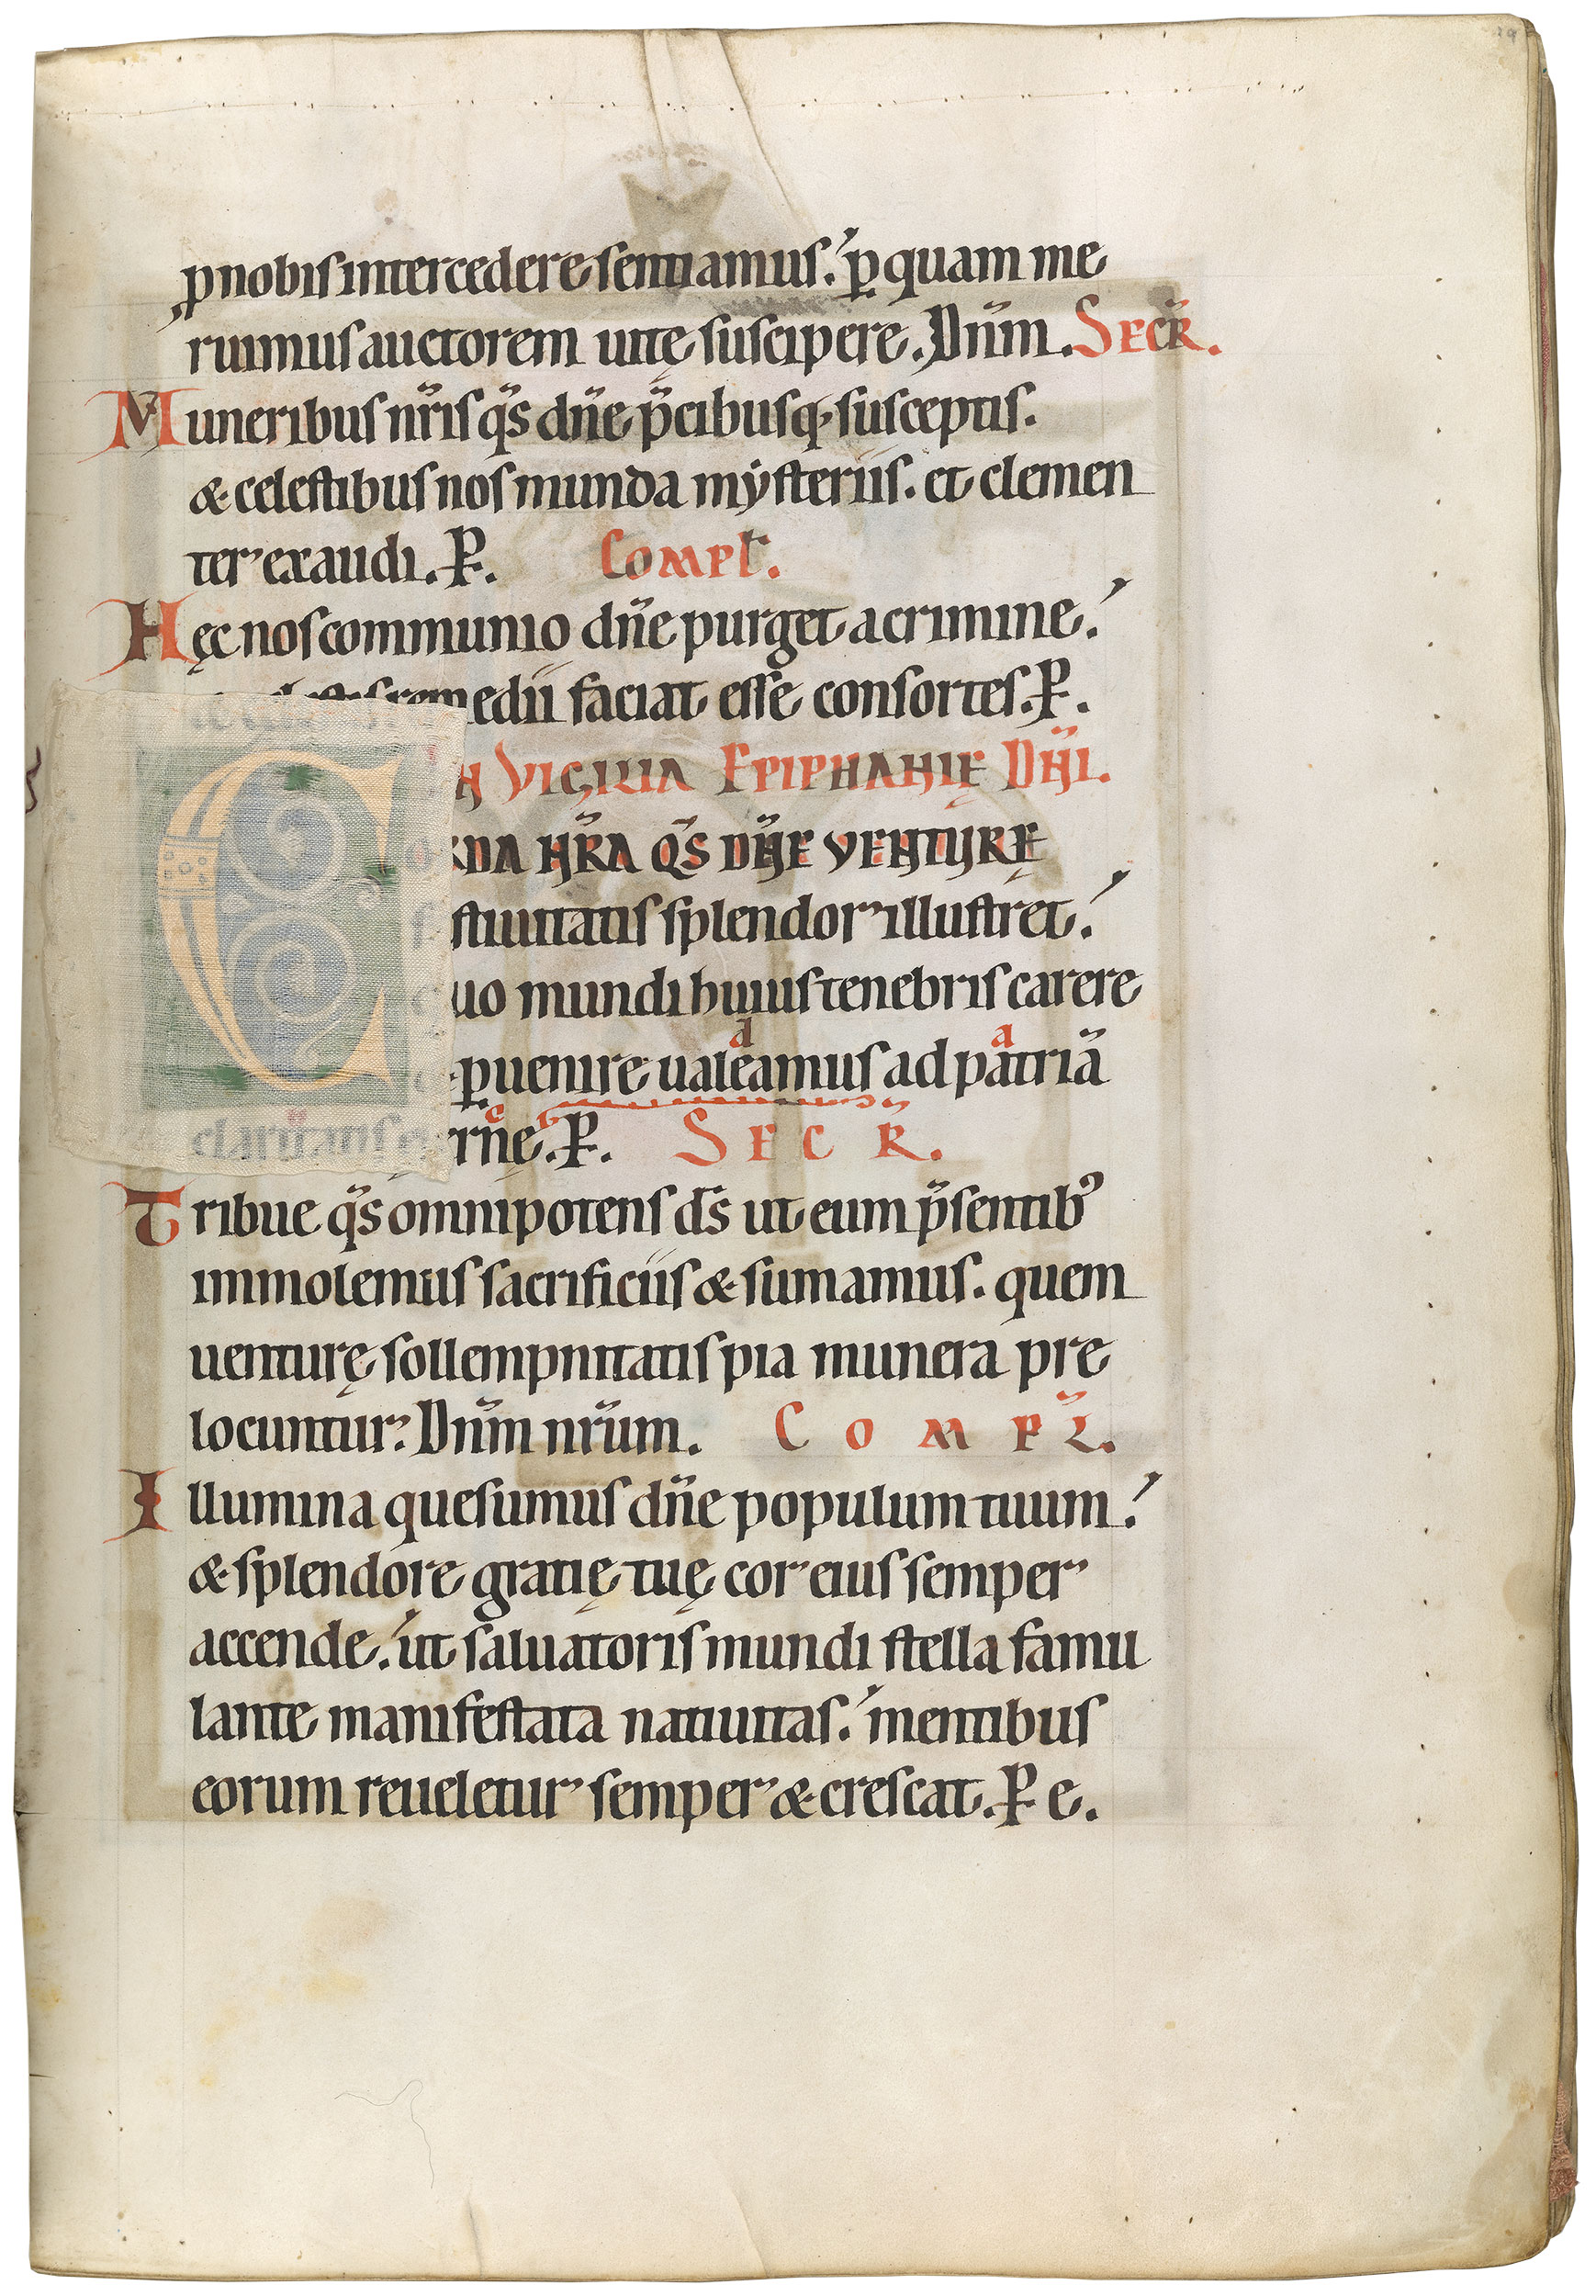 ꝓ nobis intercedere sentiamus. ꝑ quam me
ruimus auctorem uitę suscipere. Dn̄m. SECR̄.
Muneribus nr̄is qs̄ dn̄e p̄cibusq; susceptis.
& celestibus nos munda mẏsteriis. et clemen
ter exaudi. P. COMPL̄.
Hęc nos communio dn̄e purget a crimine.
remedii faciat esse consortes. P.
IN VIGILIA EPIPHANIĘ DN̄I.
CORDA NR̄A QS̄ DN̄E VENTURĘ
festiuitatis splendor illustret.
quo mundi huius tenebris carere
& ꝑuenire ualeamus ad patriā
claritatis ęternę. P. SECR̄.
Tribue qs̄ omnipotens ds̄ ut eum p̄sentib᾽
immolemus sacrificiis & sumamus. quem
uenturę sollempnitatis pia munera pre
locuntur. Dn̄m nr̄um. COMPL̄.
Illumina quesumus dn̄e populum tuum.
& splendore gratię tuę cor eius semper
accende. ut saluatoris mundi stella famu
lante manifestata natiuitas. mentibus
eorum reueletur semper & crescat. P e.